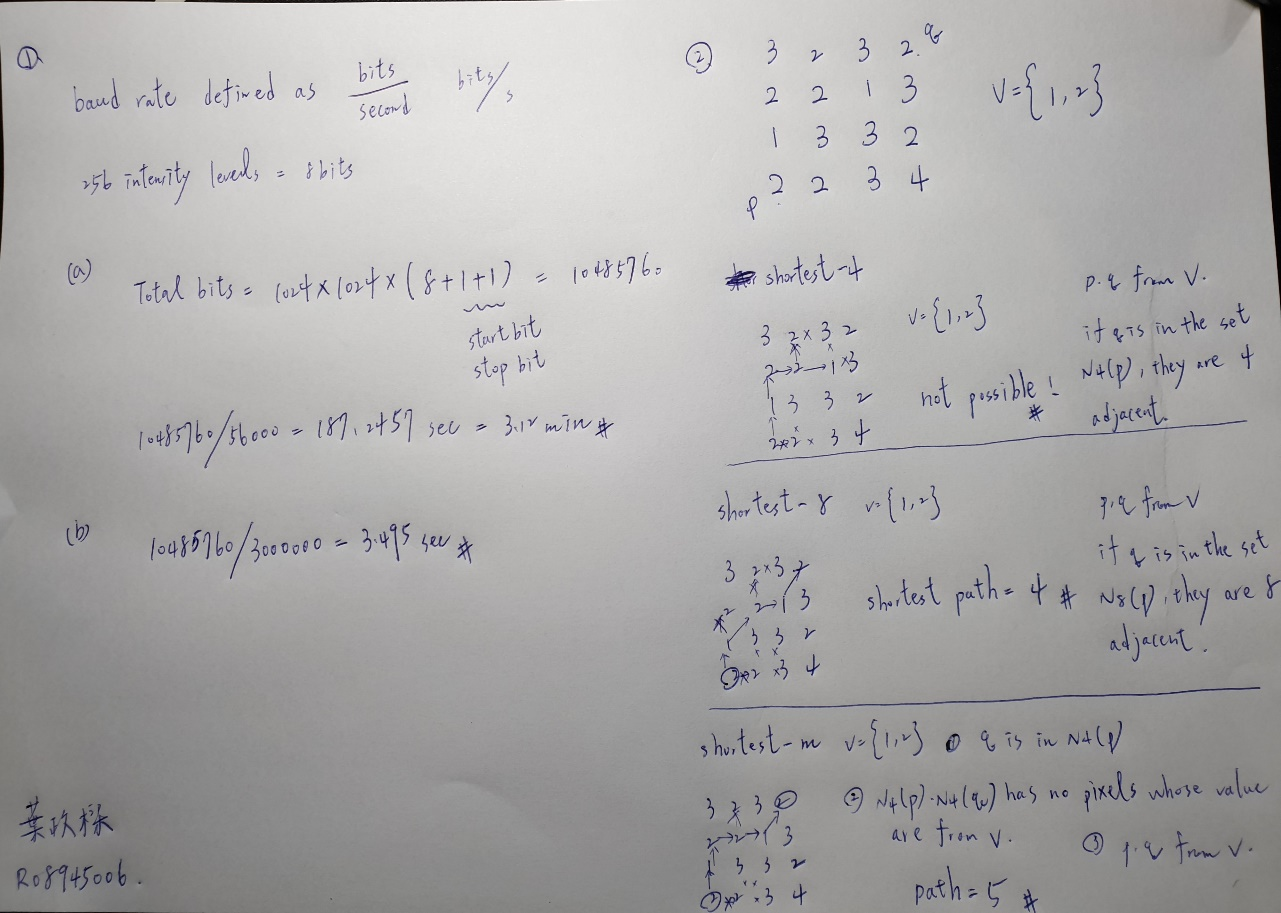 ①
baud rate defined as bits/second bits/s
256 intensity levels = 8 bits
(a)
Total bits = 1024 × 1024 × (8+1+1) = 10485760
start bit
stop bit
10485760/56000 = 187.2457 sec = 3.12 min #
(b)
10485760/3000000 = 3.495 sec #
R08945006.
②
3 2 3 2 q
2 2 1 3
1 3 3 2
p 2 2 3 4
V={1,2}
shortest-4
V={1,2}
3 2 × 3 2
2→2→1 × 3
1 3 3 2
2 × 2 × 3 4
not possible! #
p.q from V.
if q is in the set
N4(p), they are 4
adjacent.
shortest-8 V={1,2}
3 2×3 2
2 2→1 3
1 3 3 2
2×2 ×3 4
shortest path = 4 #
p.q from V
if q is in the set
N8(p), they are 8
adjacent.
shortest-m V={1,2} ① q is in N4(p)
② N4(p)∙N4(q) has no pixels whose value
are from V.
③ p.q from V.
3 2 3 2
2→2→1 3
1 3 3 2
2×2 ×3 4
path = 5 #